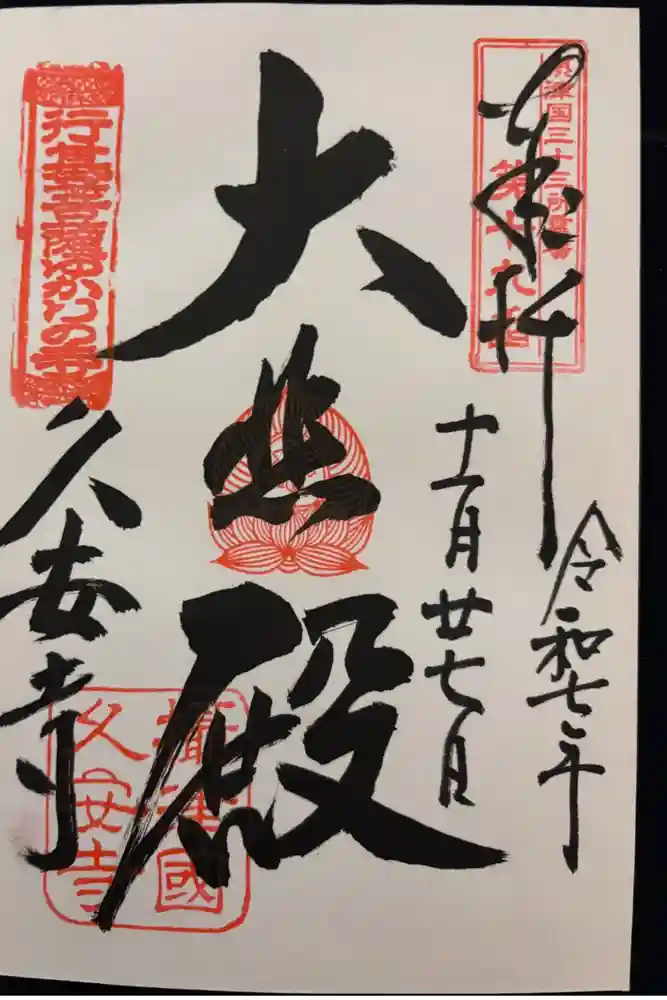 奉拝
摂津国三十三所墓等
第十九番
令和七年
十一月廿七日
大悲殿
久安寺
行基菩薩ゆかりの寺
摂津國
久安寺